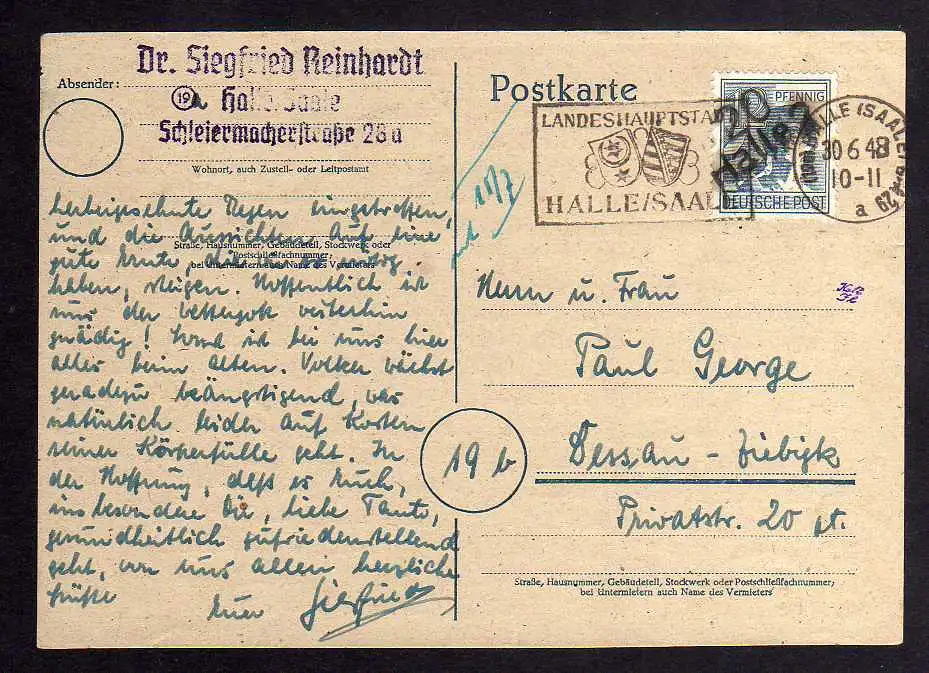 Dr. Siegfried Reinhardt
Absender:
19a Halle/Saale
Schleiermacherstraße 28a
Wohnort, auch Zustell- oder Leitpostamt
herbeigesehnte Regen eingetroffen,
und die Aussichten auf eine
Straße, Hausnummer, Gebäudeteil, Stockwerk oder
Postschließfachnummer;
gute Ernte, die wir so nötig
bei Untermietern auch Name des Vermieters
haben, steigen. Hoffentlich ist
uns der Wettergott weiterhin
gnädig! Sonst ist bei uns hier
alles beim Alten. Volker wächst
geradezu beängstigend, was
natürlich leider auf Kosten
seiner Körperfülle geht. In
der Hoffnung, daß es Euch,
insbesondere Dir, liebe Tante,
gesundheitlich zufriedenstellend
geht, von uns allen herzliche
Grüße
Euer Siegfried
Postkarte
LANDESHAUPTSTADT
HALLE/SAALE
PFENNIG
DEUTSCHE POST
20
Halle 2
HALLE (SAALE) 2
30.6.48
10-11
a
18/7
Herrn u. Frau
Paul George
19b
Dessau - Ziebigk
Privatstr. 20 pt.
Straße, Hausnummer, Gebäudeteil, Stockwerk oder Postschließfachnummer;
bei Untermietern auch Name des Vermieters